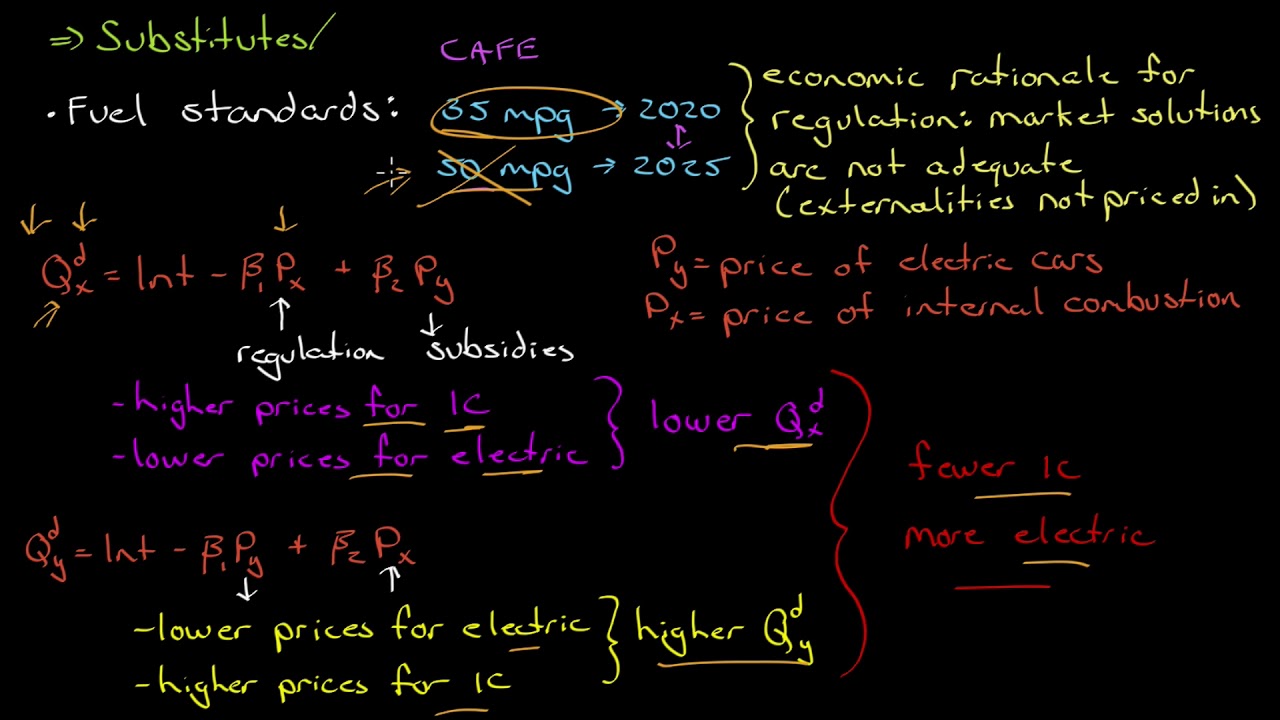 ⇒ Substitutes/
CAFE
• Fuel standards: 35 mpg → 2020
50 mpg → 2025
economic rationale for
regulation: market solutions
are not adequate
(externalities not priced in)
Qxᵈ = Int - β₁Px + β₂Py
Py = price of electric cars
Px = price of internal combustion
regulation subsidies
- higher prices for IC
- lower prices for electric
lower Qxᵈ
fewer IC
more electric
Qyᵈ = Int - β₁Py + β₂Px
- lower prices for electric
- higher prices for IC
higher Qyᵈ